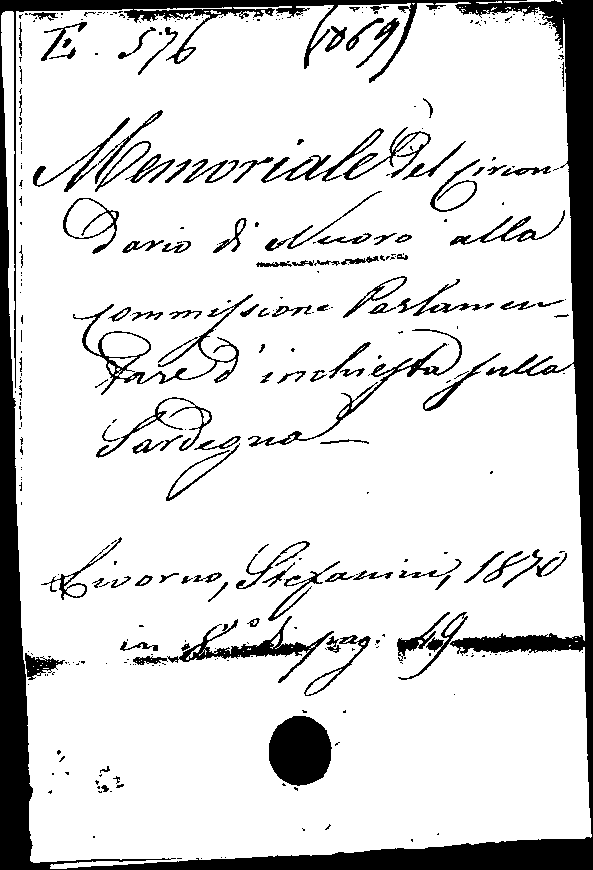 E. 576 (1069)
Memoriale del Circon
dario di Nuoro alla
Commissione Parlamen-
tare d'inchiesta sulla
Sardegna —
Livorno, Stefanini, 1870
in 8° di pag. 49